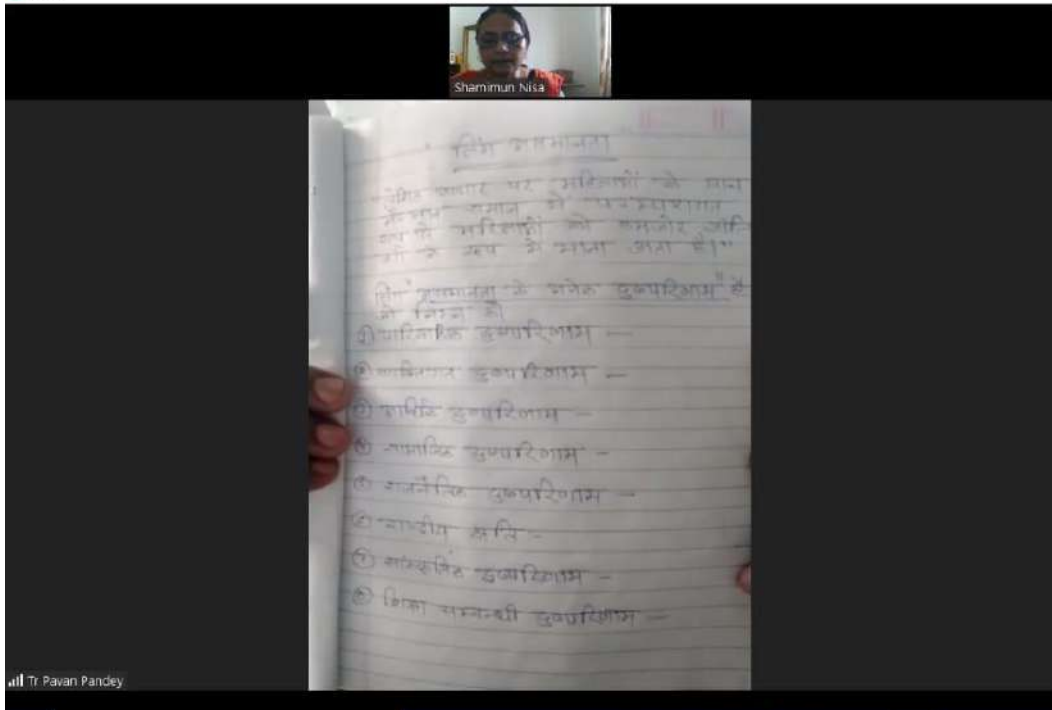 Shamimun Nisa
लिंग असमानता
आधार पर महिलाओं के साथ
समाज में परम्परागत
रूप से महिलाओं को कमजोर जाति
के रूप में माना जाता है।"
लिंग "असमानता के अनेक दुष्परिणाम" है
जो निम्न
① पारिवारिक दुष्परिणाम —
② व्यक्तिगत दुष्परिणाम —
③ आर्थिक दुष्परिणाम —
④ सामाजिक दुष्परिणाम —
⑤ राजनैतिक दुष्परिणाम —
⑥ राष्ट्रीय क्षति —
⑦ सांस्कृतिक दुष्परिणाम —
⑧ शिक्षा सम्बन्धी दुष्परिणाम —
Tr Pavan Pandey